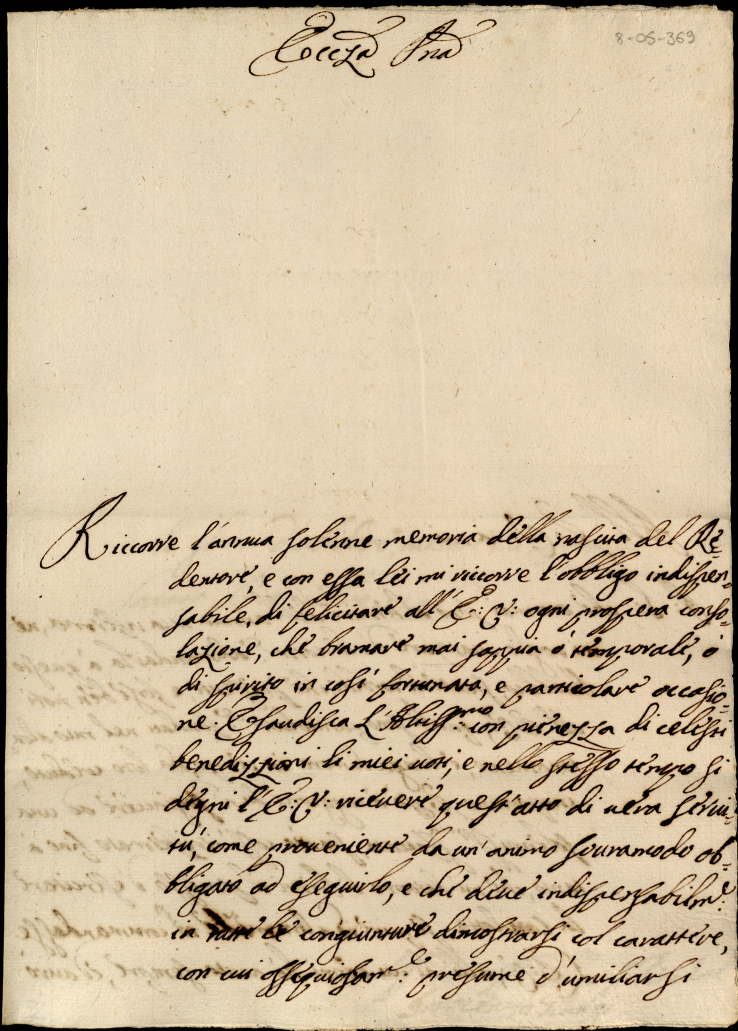 8-05-369
Eccza Pna
Riccorre l'annua solenne memoria della nascita del Re=
dentore, e con essa lei mi ricorre l'obbligo indispen=
sabile, di felicitare all' E: V: ogni prospera conso=
lazione, che bramare mai sappia ò temporale, ò
di spirito in così fortunata, e particolare occasio=
ne. Esaudisca L'Altissmo: con pienezza di celesti
benedizzioni li miei voti, e nello stesso tempo si
degni l'E: V: ricevere quest'atto di vera servi=
tù, come proveniente da un'animo souramodo ob=
bligato ad eseguirlo, e che deve indispensabilme:
in tutte le congiunture dimostrarsi col carattere,
con cui ossequiosame: presume d'umiliarsi